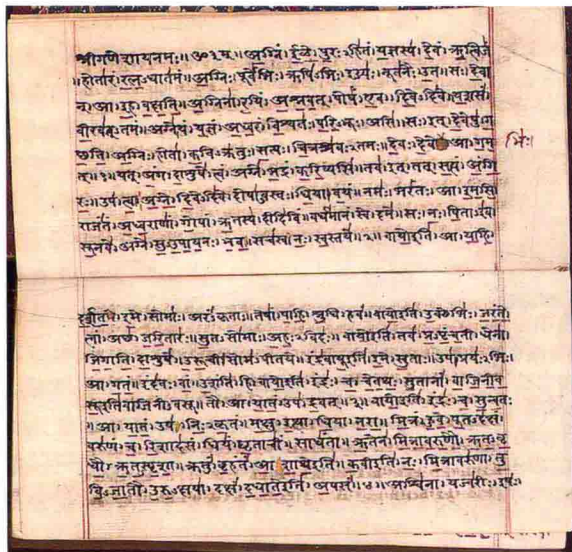 श्रीगणेशायनमः॥ॐ३म्॥अग्निं।ईळे।पुरःऽहितं।यज्ञस्य।देवं।ऋत्विजं
॥होतारं।रत्नऽधातमं॥अग्निः।पूर्वेभिः।ऋषिऽभिः।ईड्यः।नूतनैः।उत॥सः।देवा
न्।आ।इह।वक्षति॥अग्निना।रयिं।अश्नवत्।पोषं।एव।दिवेऽदिवे॥यशसं।
वीरवत्ऽतमं॥अग्ने।यं।यज्ञं।अध्वरं।विश्वतः।परिऽभूः।असि॥सः।इत्।देवेषु।ग
च्छति॥अग्निः।होता।कविऽक्रतुः।सत्यः।चित्रश्रवःऽतमः॥देवः।देवे।आ।गम
भिः।
त्॥१॥यत्।अंग।दाशुषे।त्वं।अग्ने।भद्रं।करिष्यसि॥तव।इत्।तत्।सत्यं।अंगि
रः॥उप।त्वा।अग्ने।दिवेऽदिवे।दोषाऽवस्तः।धिया।वयं॥नमः।भरंतः।आ।इमसि॥
राजंतं।अध्वराणां।गोपां।ऋतस्य।दीदिविं॥वर्धमानं।स्वे।दमे॥सः।नः।पिताऽइव।
सूनवे।अग्ने।सुऽउपायनः।भव॥सचस्व।नः।स्वस्तये॥२॥वायोइति।आ।याहि।
दर्शत।इमे।सोमाः।अरंऽकृताः॥तेषां।पाहि।श्रुधि।हवं॥वायोइति।उक्थेभिः।जरंते।
त्वां।अच्छ।जरितारः॥सुतऽसोमाः।अहःऽविदः॥वायोइति।तव।प्रऽपृंचती।धेना।
जिगाति।दाशुषे॥उरूची।सोमऽपीतये॥इंद्रवायूइति।इमे।सुताः॥उप।प्रयःऽभिः।
आ।गतं॥इंदवः।वां।उशंति।हि॥वायोइति।इंद्रः।च।चेतथः।सुतानां।वाजिनीव
सूइतिवाजिनीऽवसू॥तौ।आ।यातं।उप।द्रवत्॥३॥वायोइति।इंद्रः।च।सुन्वतः
॥आ।यातं।उप।निःऽकृतं॥मक्षु।इत्था।धिया।नरा॥मित्रं।हुवे।पूतऽदक्षं।
वरुणं।च।रिशादसं॥धियं।घृताचीं॥साधंता॥ऋतेन।मित्रावरुणौ।ऋतऽवृ
धौ।ऋतऽस्पृशा॥क्रतुं।बृहंतं।आशाथेइति॥कवीइति।नः।मित्रावरुणा।तु
विऽजातौ।उरुऽक्षया॥दक्षं।दधातेइति।अपसं॥४॥अश्विना।यज्वरीः।इषः।